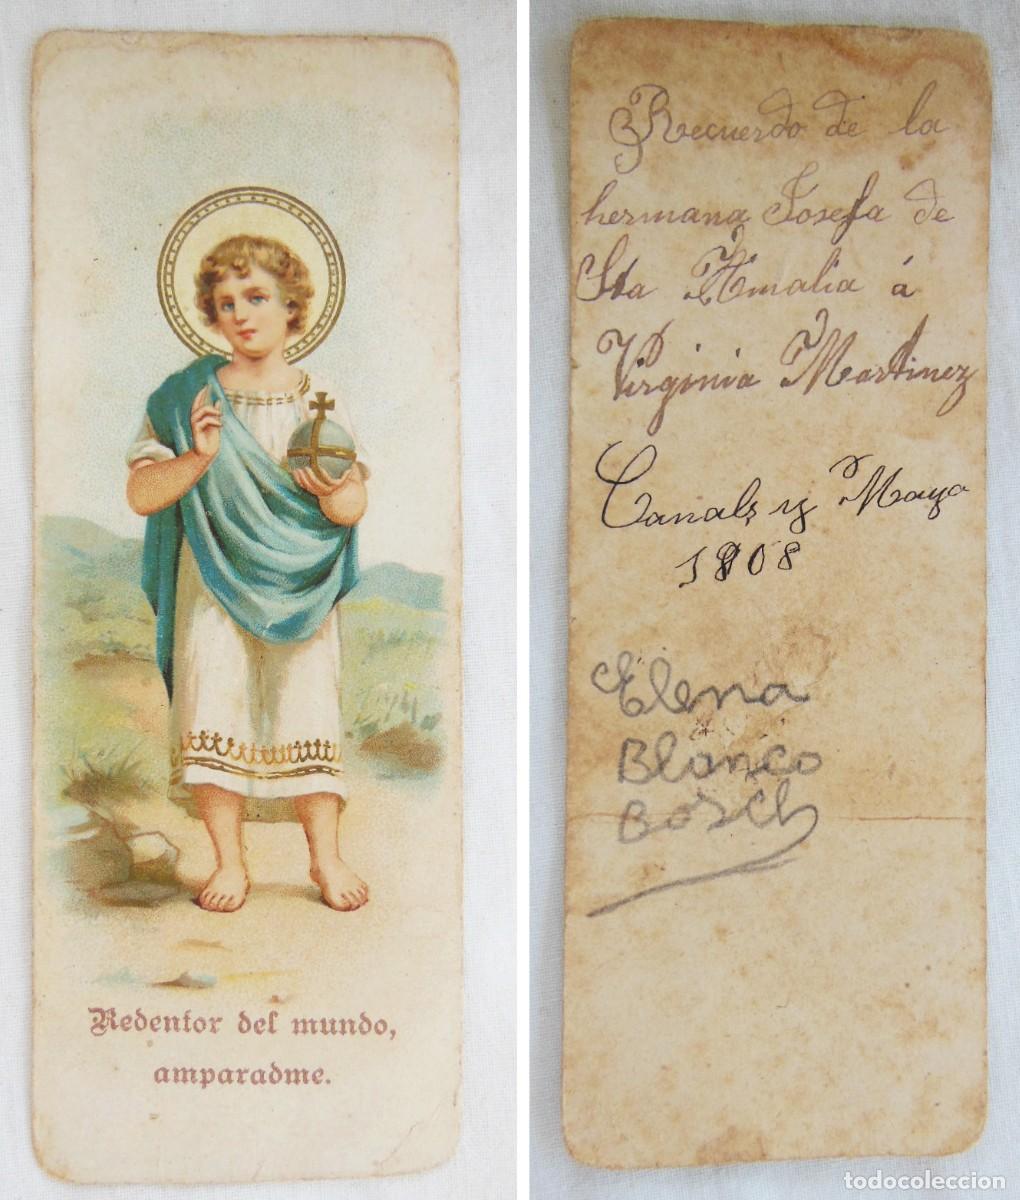 Redentor del mundo,
amparadme.
Recuerdo de la
hermana Josefa de
Sta Amalia á
Virginia Martinez
Canals y Mayo
1908
Elena
Blanco
Bosch
todocoleccion